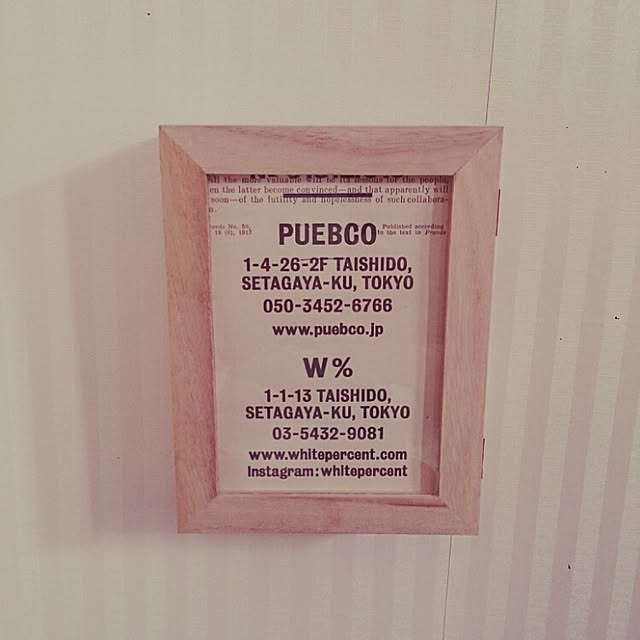 all the more valuable will be its lessons for the people,
en the latter become convinced—and that apparently will
soon—of the futility and hopelessness of such collabora-
n.
Pravda No. 80, Published according
18 (6), 1917 to the text in Pravda
PUEBCO
1-4-26-2F TAISHIDO,
SETAGAYA-KU, TOKYO
050-3452-6766
www.puebco.jp
W%
1-1-13 TAISHIDO,
SETAGAYA-KU, TOKYO
03-5432-9081
www.whitepercent.com
Instagram:whitepercent